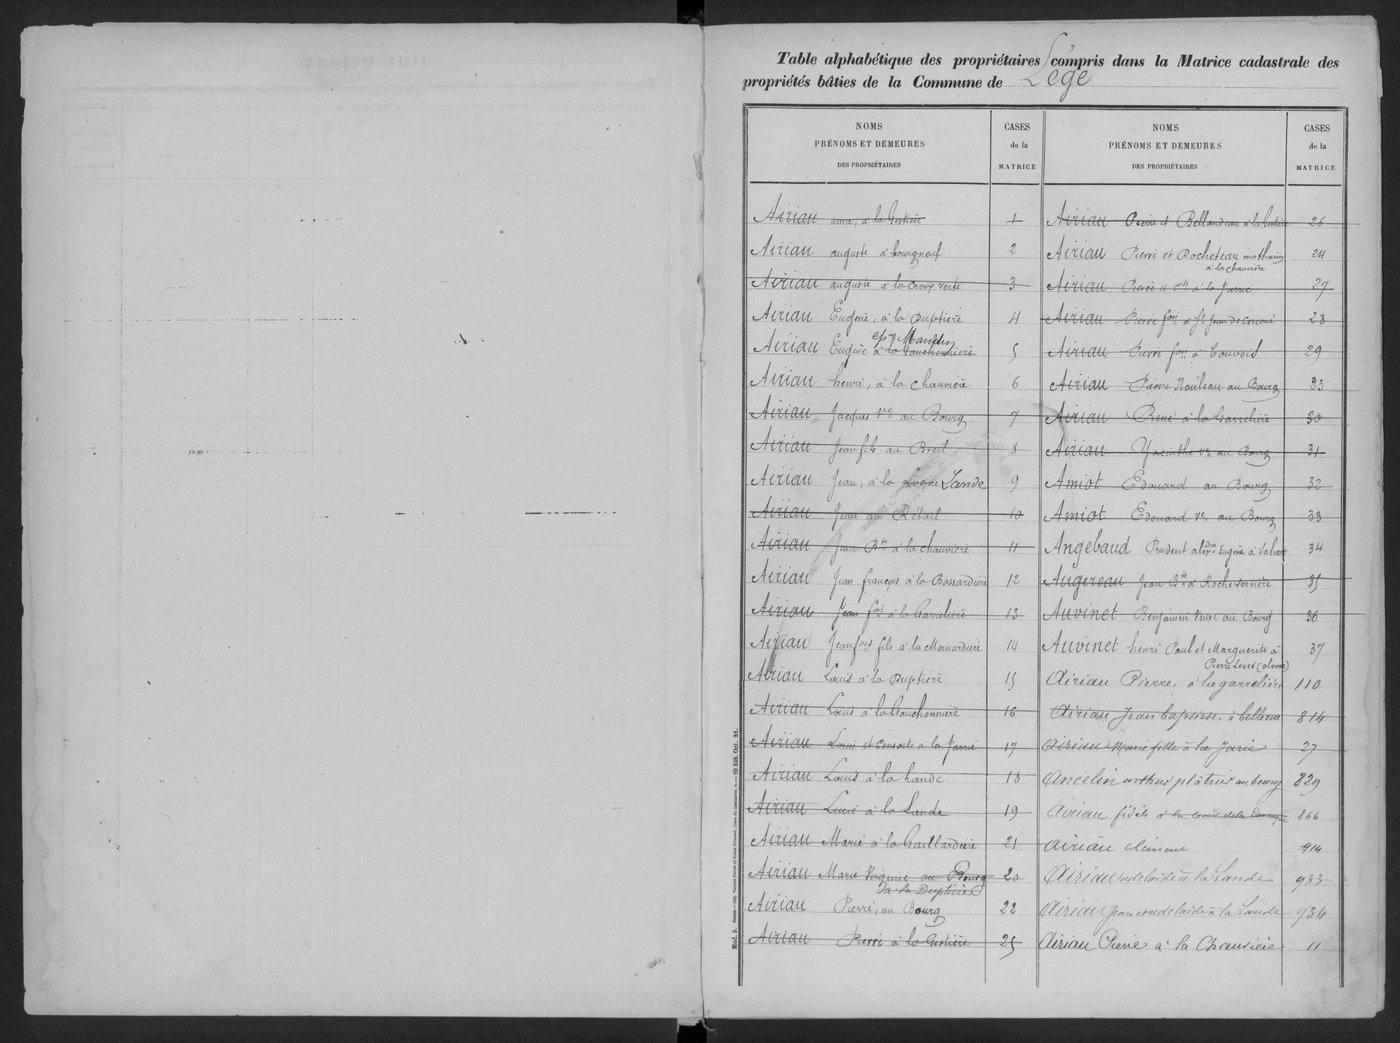 Table alphabétique des propriétaires compris dans la Matrice cadastrale des
propriétés bâties de la Commune de Legé
NOMS
PRÉNOMS ET DEMEURES
DES PROPRIÉTAIRES
CASES
de la
MATRICE
Airiau à la Gestière 1
Airiau auguste à bourgneuf 2
Airiau auguste à la Croix verte 3
Airiau Eugène, à la Duptière 4
Airiau Eugène à la Gauchonnière 5
Airiau henri, à la chauvière 6
Airiau Jacques Vve au Bourg 7
Airiau Jean fils au Breil 8
Airiau Jean, à la Logne Lande 9
Airiau Jean au Rétail 10
Airiau Jean Bte à la chauvière 11
Airiau Jean françois à la Bossardière 12
Airiau Jean fois à la Garrelière 13
Airiau Jean fois fils à la Moinardière 14
Airiau Louis à la Duptière 15
Airiau Louis à la Gauchonnière 16
Airiau Louis et Consorts à la Jarrie 17
Airiau Louis à la Lande 18
Airiau Louis à la Lande 19
Airiau Marie à la Gaillardière 21
Airiau Marie Virginie au Bourg 20
à la Duptière
Airiau Pierre, au Bourg 22
Airiau Pierre à la Gestière 25
NOMS
PRÉNOMS ET DEMEURES
DES PROPRIÉTAIRES
CASES
de la
MATRICE
Airiau Pierre et Bellandeau à la Gestière 26
Airiau Pierre et Rocheteau mathurin 24
à la chauvière
Airiau Pierre et à la Jarrie 27
Airiau Pierre fois à St Jean de Corcoué 28
Airiau Pierre fois à Touvois 29
Airiau Pierre Nauleau au Bourg 23
Airiau René à la Garrelière 30
Airiau Hyacinthe Vve au Bourg 31
Amiot Edouard au Bourg 32
Amiot Edouard Vve au Bourg 33
Angebaud Prudent Eugène à 34
Augereau Jean Bte à Rocheservière 35
Auvinet Benjamin Veuve au Bourg 36
Auvinet henri Paul et Marguerite à 37
Pierre Levée (olonne)
Airiau Pierre, à la garrelière 110
Airiau Jean baptiste, à bellevue 814
Airiau Marie fille à la Jarie 27
Ancelin arthur plâtrier au bourg 829
Airiau fidèle à la 866
Airiau clémence 914
Airiau adelaïde à la Lande 933
Airiau Jean adelaïde à la Lande 934
Airiau Pierre à la Chauvière 11